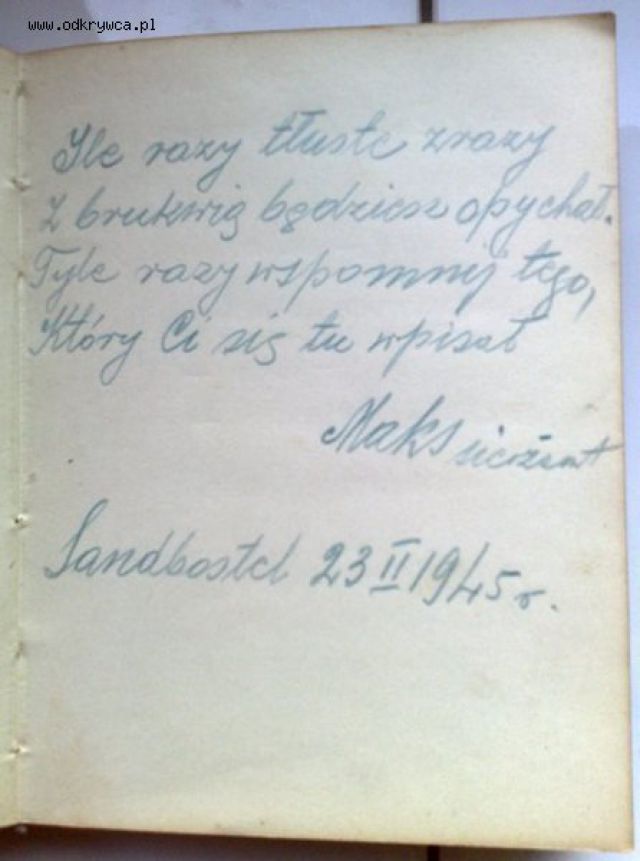 www.odkrywca.pl
Ile razy tłuste zrazy
z brukwią będziesz opychał.
Tyle razy wspomnij tego,
Który Ci się tu wpisał
Maks sierżant
Sandbostel 23 II 1945 r.